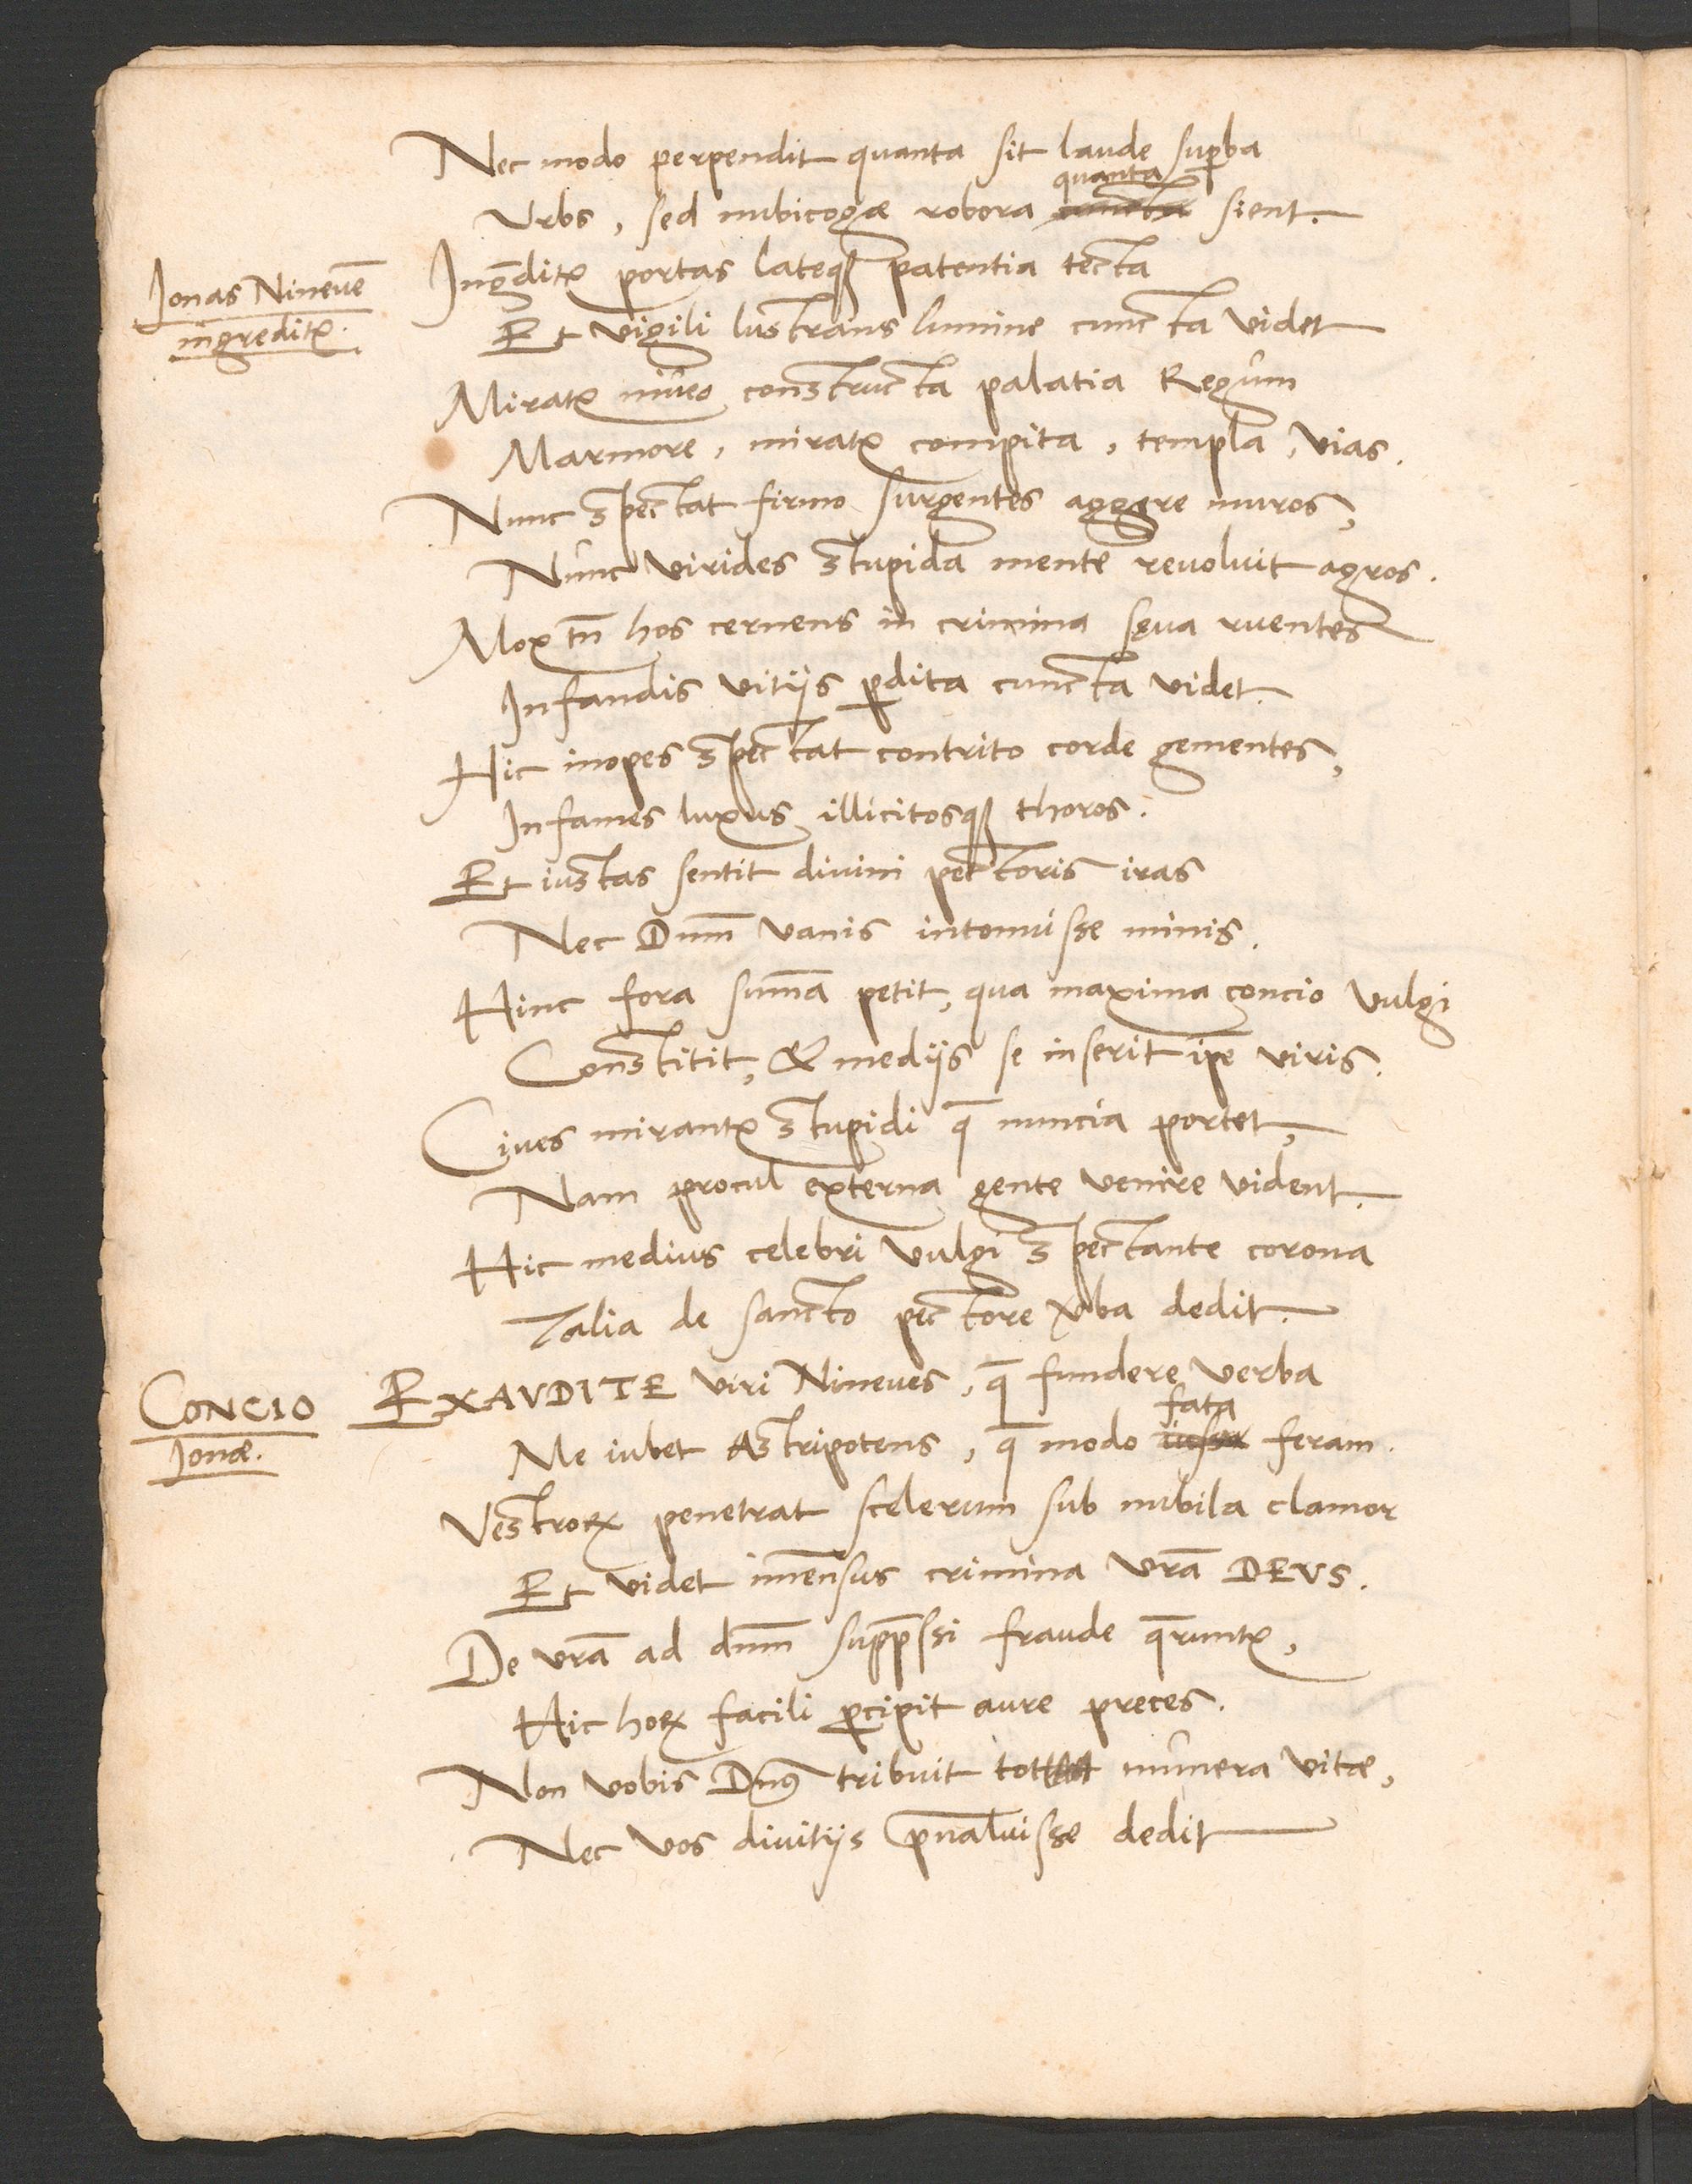 Nec modo perpendit quanta sit laude suꝑba
quanta
Vrbs, sed nubicogæ robora cuncta sient.
Jonas Nineuē
ingreditꝛ.
Inḡditꝛ portas lateqꝫ patentia tecta
Et vigili lustrans lumine cuncta videt
Miratꝛ niueo constructa palatia Regum
Marmore, miratꝛ compita, templa, vias.
Nunc spectat firmo surgentes aggere muros,
Nunc virides stupida mente reuoluit agros.
Mox tn̄ hos cernens in crimina sęua ruentes
Infandis vitijs ꝑdita cuncta videt.
Hic inopes spectat contrito corde gementes,
Infames luxus illicitosqꝫ thoros.
Et iustas sentit diuini pectoris iras
Nec Dnm̄ vanis intonuisse minis.
Hinc fora sum̄a petit, qua maxima concio vulgi
Constitit, & medijs se inserit ip̄e viris.
Ciues mirantꝛ stupidi q̄ nuncia portet,
Nam procul externa gente venire vident.
Hic medius celebri vulgi spectante corona
Talia de sancto pectore v̄ba dedit.
CONCIO
Jonæ.
EXAVDITE viri Nineues, q̄ fundere verba
fata
Me iubet Astripotens, q̄ modo iussa feram.
Vestroꝝ penetrat scelerum sub nubila clamor
Et videt im̄ensus crimina vr̄a DEVS.
De vr̄a ad dnm̄ supp̄ssi fraude q̄runtꝛ,
Hic hoꝝ facili ꝑcipit aure preces.
Non vobis Dn̄s tribuit tot munera vitæ,
Nec vos diuitijs p̄ualuisse dedit